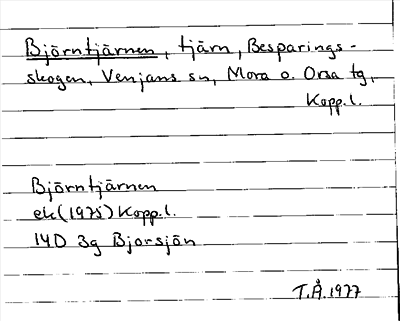 Björntjärnen, tjärn, Besparings-
skogen, Venjans sn, Mora o. Orsa tg,
Kopp.l.
Björntjärnen
ek (1975) Kopp.l.
14D 3g Bjorsjön
T.Å. 1977